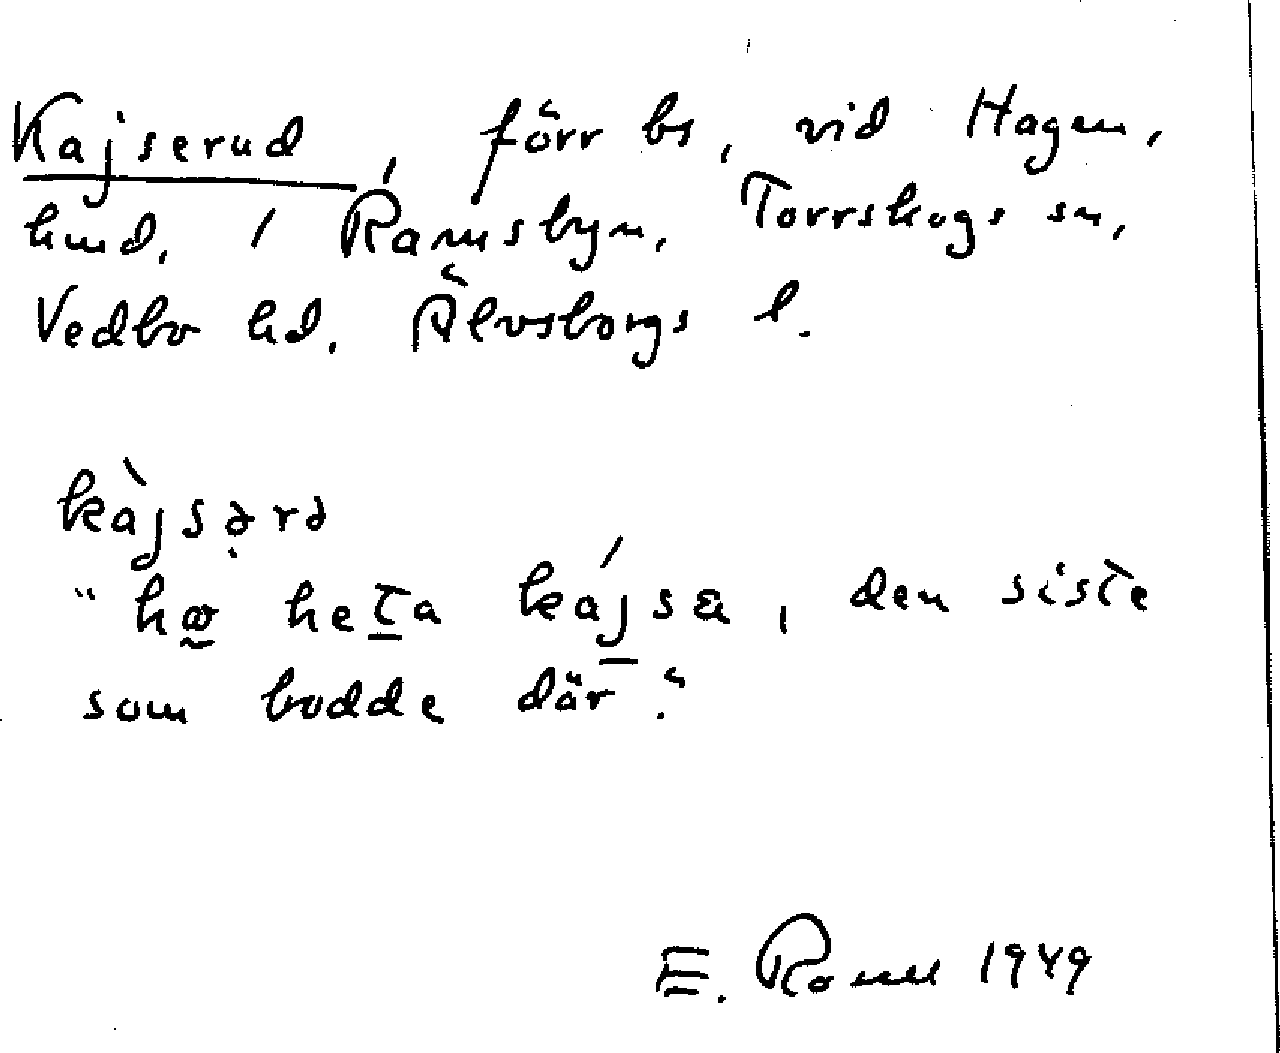 Kajserud, förr bs, vid Hagen,
hmd, i Ramsbyn, Torrskogs sn,
Vedbo hd. Älvsborgs l.
kàjsə̣rə
"hœ heta kájsa, den siste
som bodde där."
E. 1949